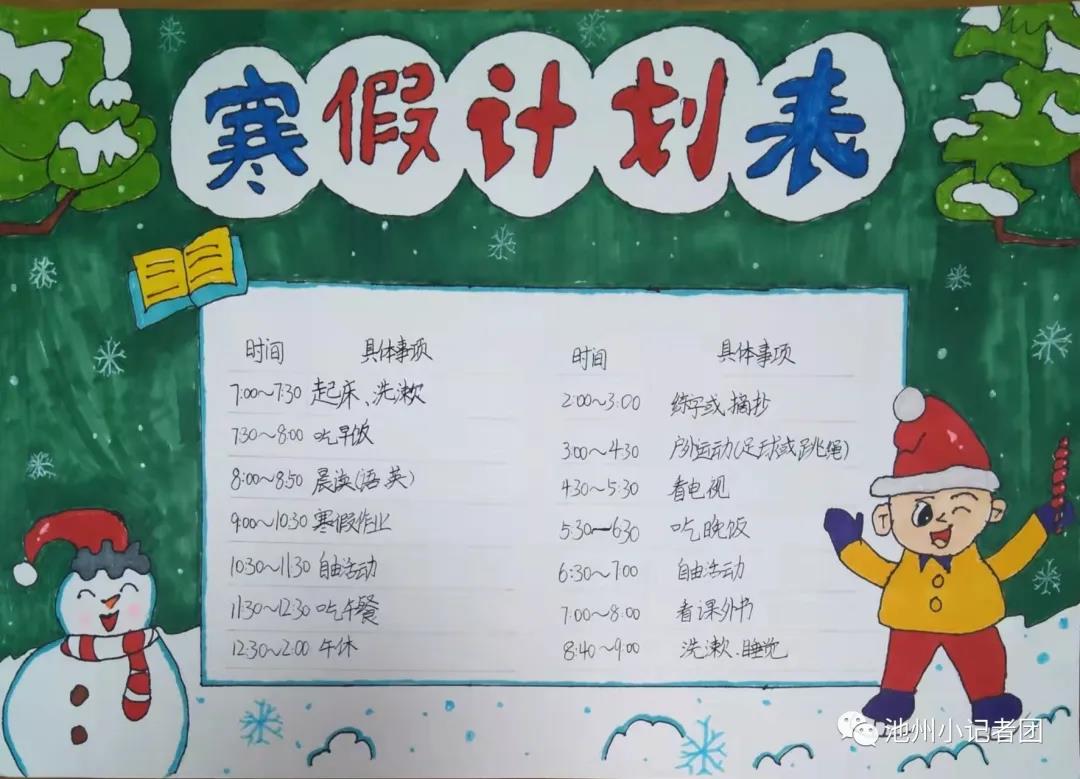 寒假计划表
时间 具体事项
7:00~7:30 起床、洗漱
7:30~8:00 吃早饭
8:00~8:50 晨读(语.英)
9:00~10:30 寒假作业
10:30~11:30 自由活动
11:30~12:30 吃午餐
12:30~2:00 午休
时间 具体事项
2:00~3:00 练字或摘抄
3:00~4:30 户外运动(足球或跳绳)
4:30~5:30 看电视
5:30~6:30 吃晚饭
6:30~7:00 自由活动
7:00~8:00 看课外书
8:40~9:00 洗漱、睡觉
池州小记者团